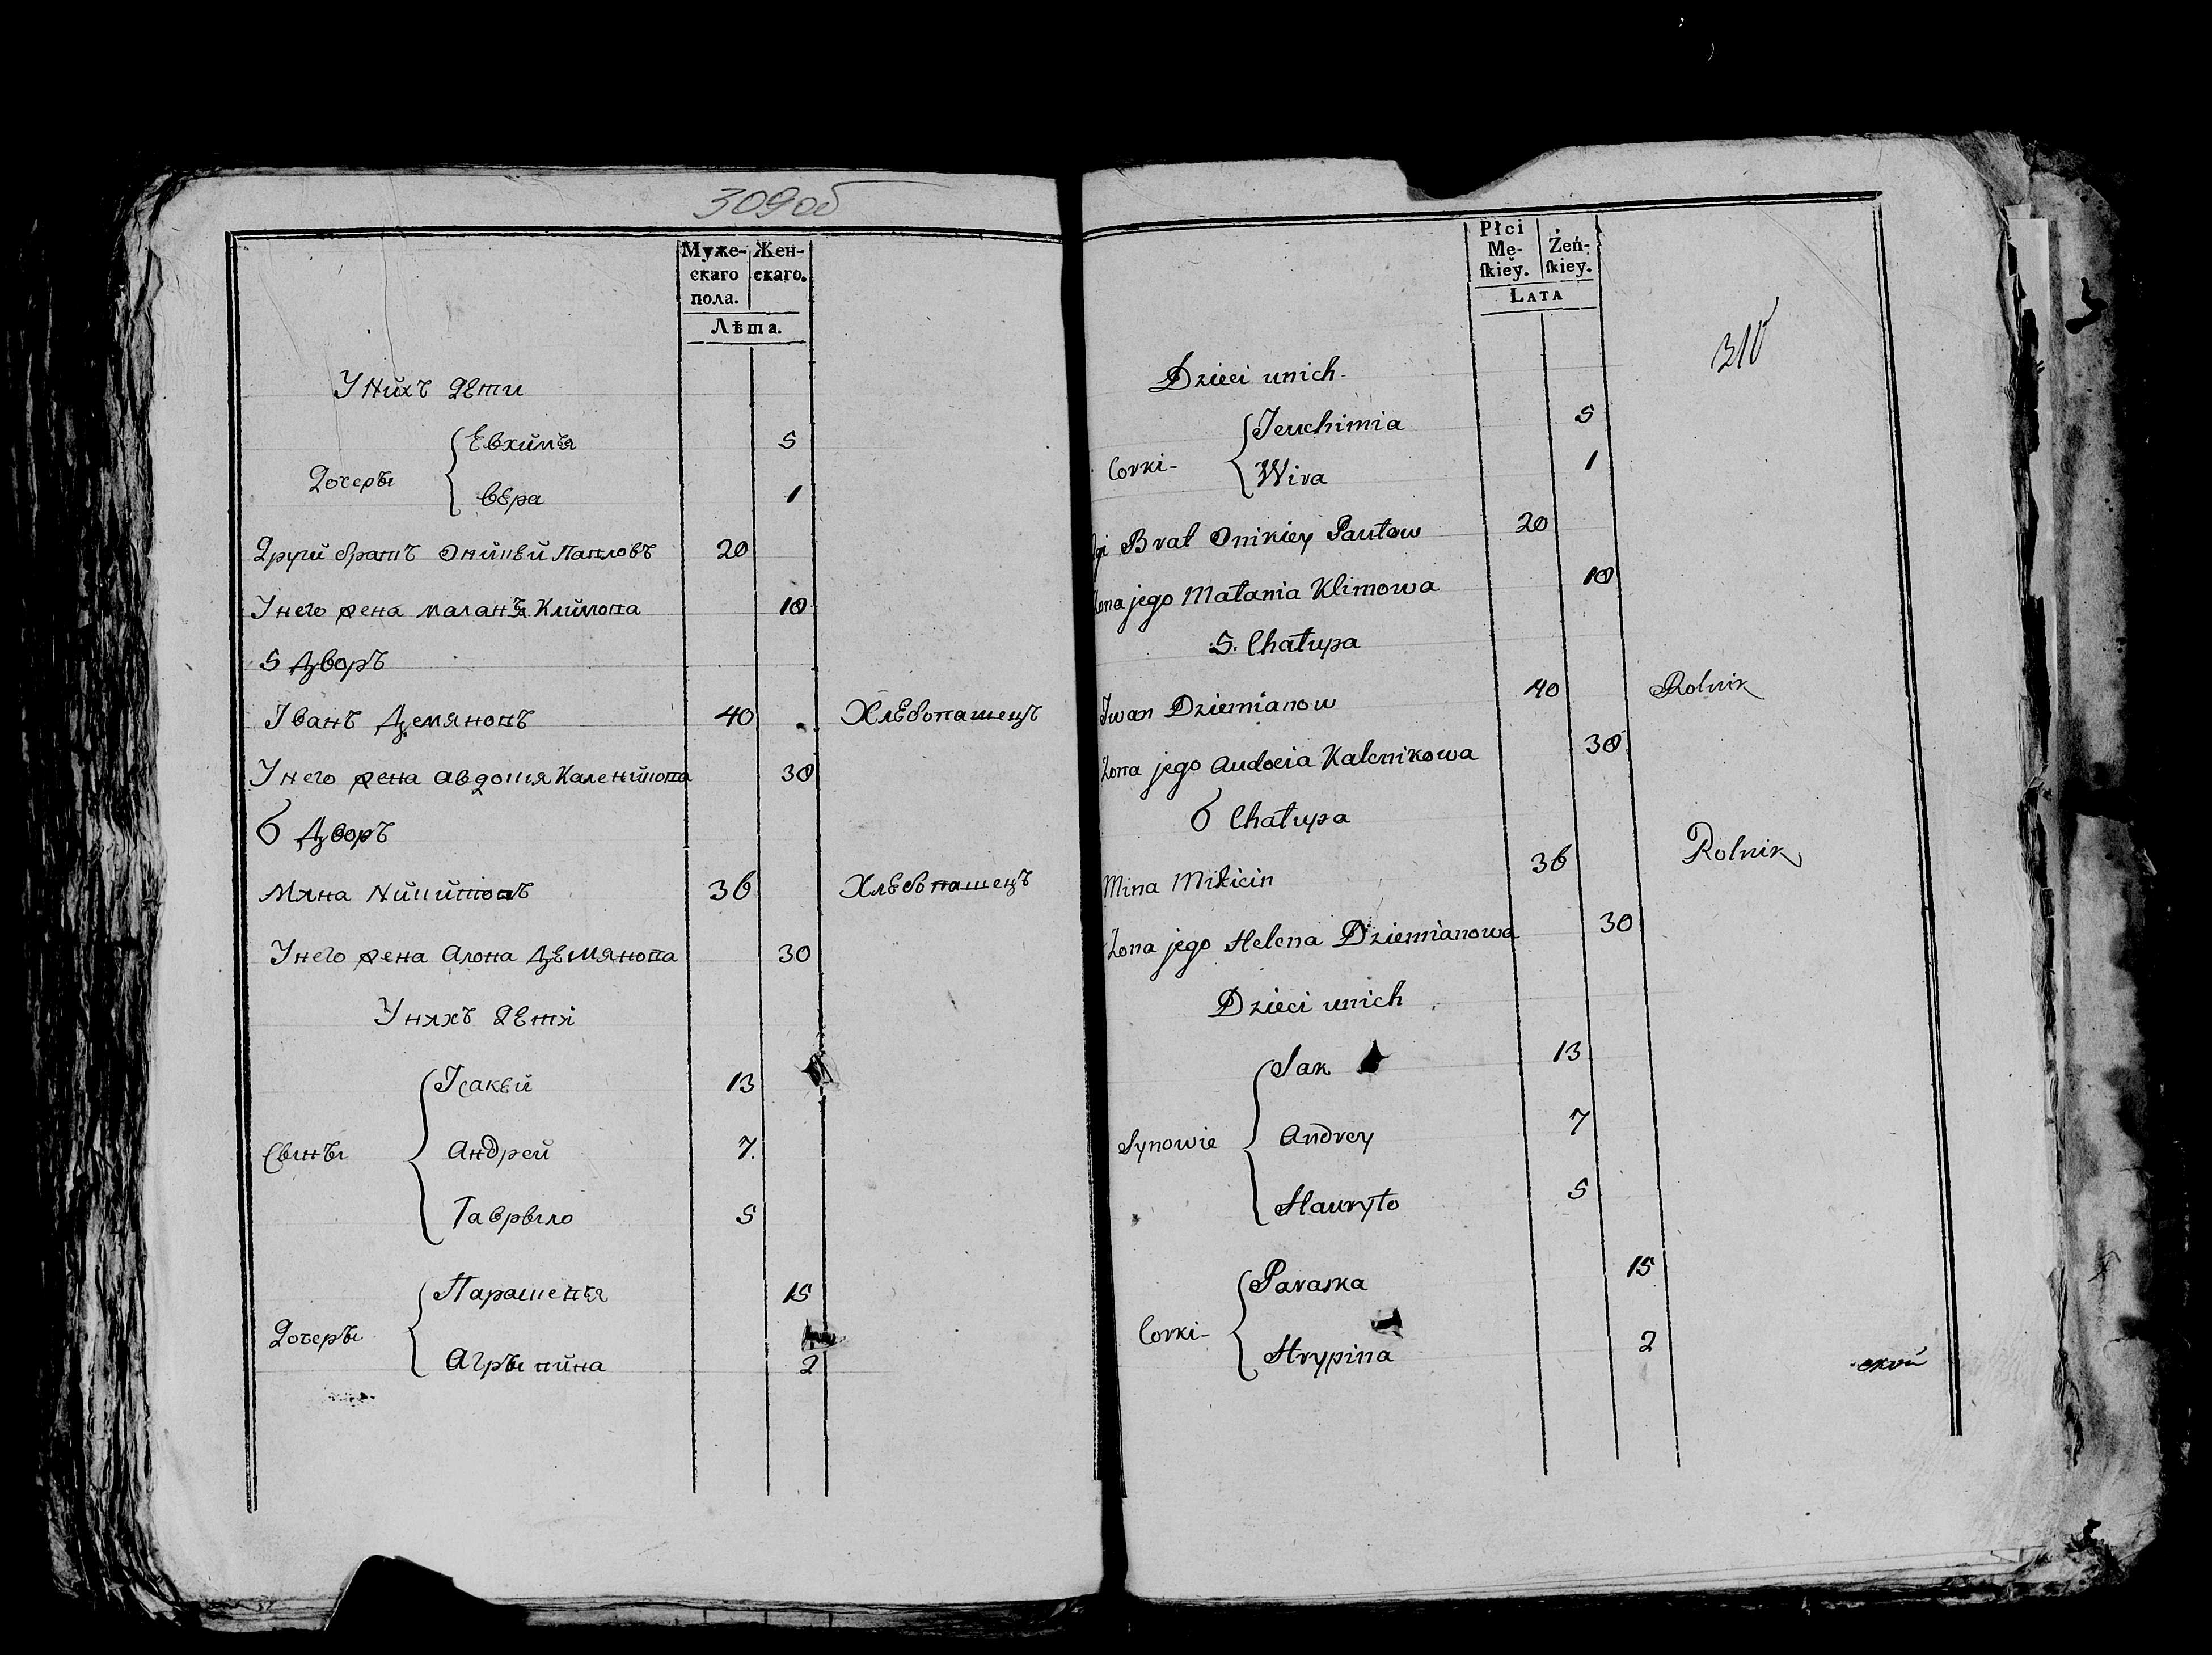 309об
Муже- Жен-
скаго скаго.
пола.
Лѣта.
У нихъ дѣти
Дочеры
Евхимъя 5
Вѣра 1
Други братъ Оникѣй Павловъ 20
У него жена Маланъя Климова 18
5 Дворъ
Іванъ Демяновъ 40 Хлѣбопашецъ
У него жена Авдотя Каленикова 38
6 Дворъ
Мина Микитовъ 36 Хлѣбпашецъ
У него жена Алона Дѣмянова 30
У нихъ дѣти
Сыны
Ісакѣй 13
Андрей 7.
Гаврыло 5
Дочеры
Парашекъя 15
Агрыпина 2
Płci
Mę- Żeń-
skiey. skiey.
LATA
310
Dzieci unich
Corki-
Jeuchimia 5
Wira 1
gi Brat Onikiey Pawłow 20
Żona jego Małania Klimowa 18
5. Chałupa
Iwan Dziemianow 40 Rolnik
Żona jego Audocia Kalenikowa 38
6 Chałupa
Mina Mikicin 36 Rolnik
Żona jego Helena Dziemianowa 30
Dzieci unich
Synowie
Sak 13
Andrey 7
Hauryło 5
Corki-
Paraska 15
Hrypina 2
ской